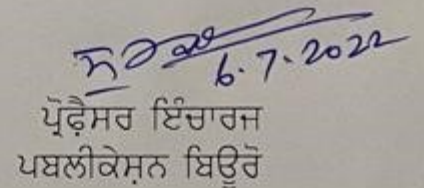 6.7.2022
ਪ੍ਰੋਫ਼ੈਸਰ ਇੰਚਾਰਜ
ਪਬਲੀਕੇਸ਼ਨ ਬਿਊਰੋ